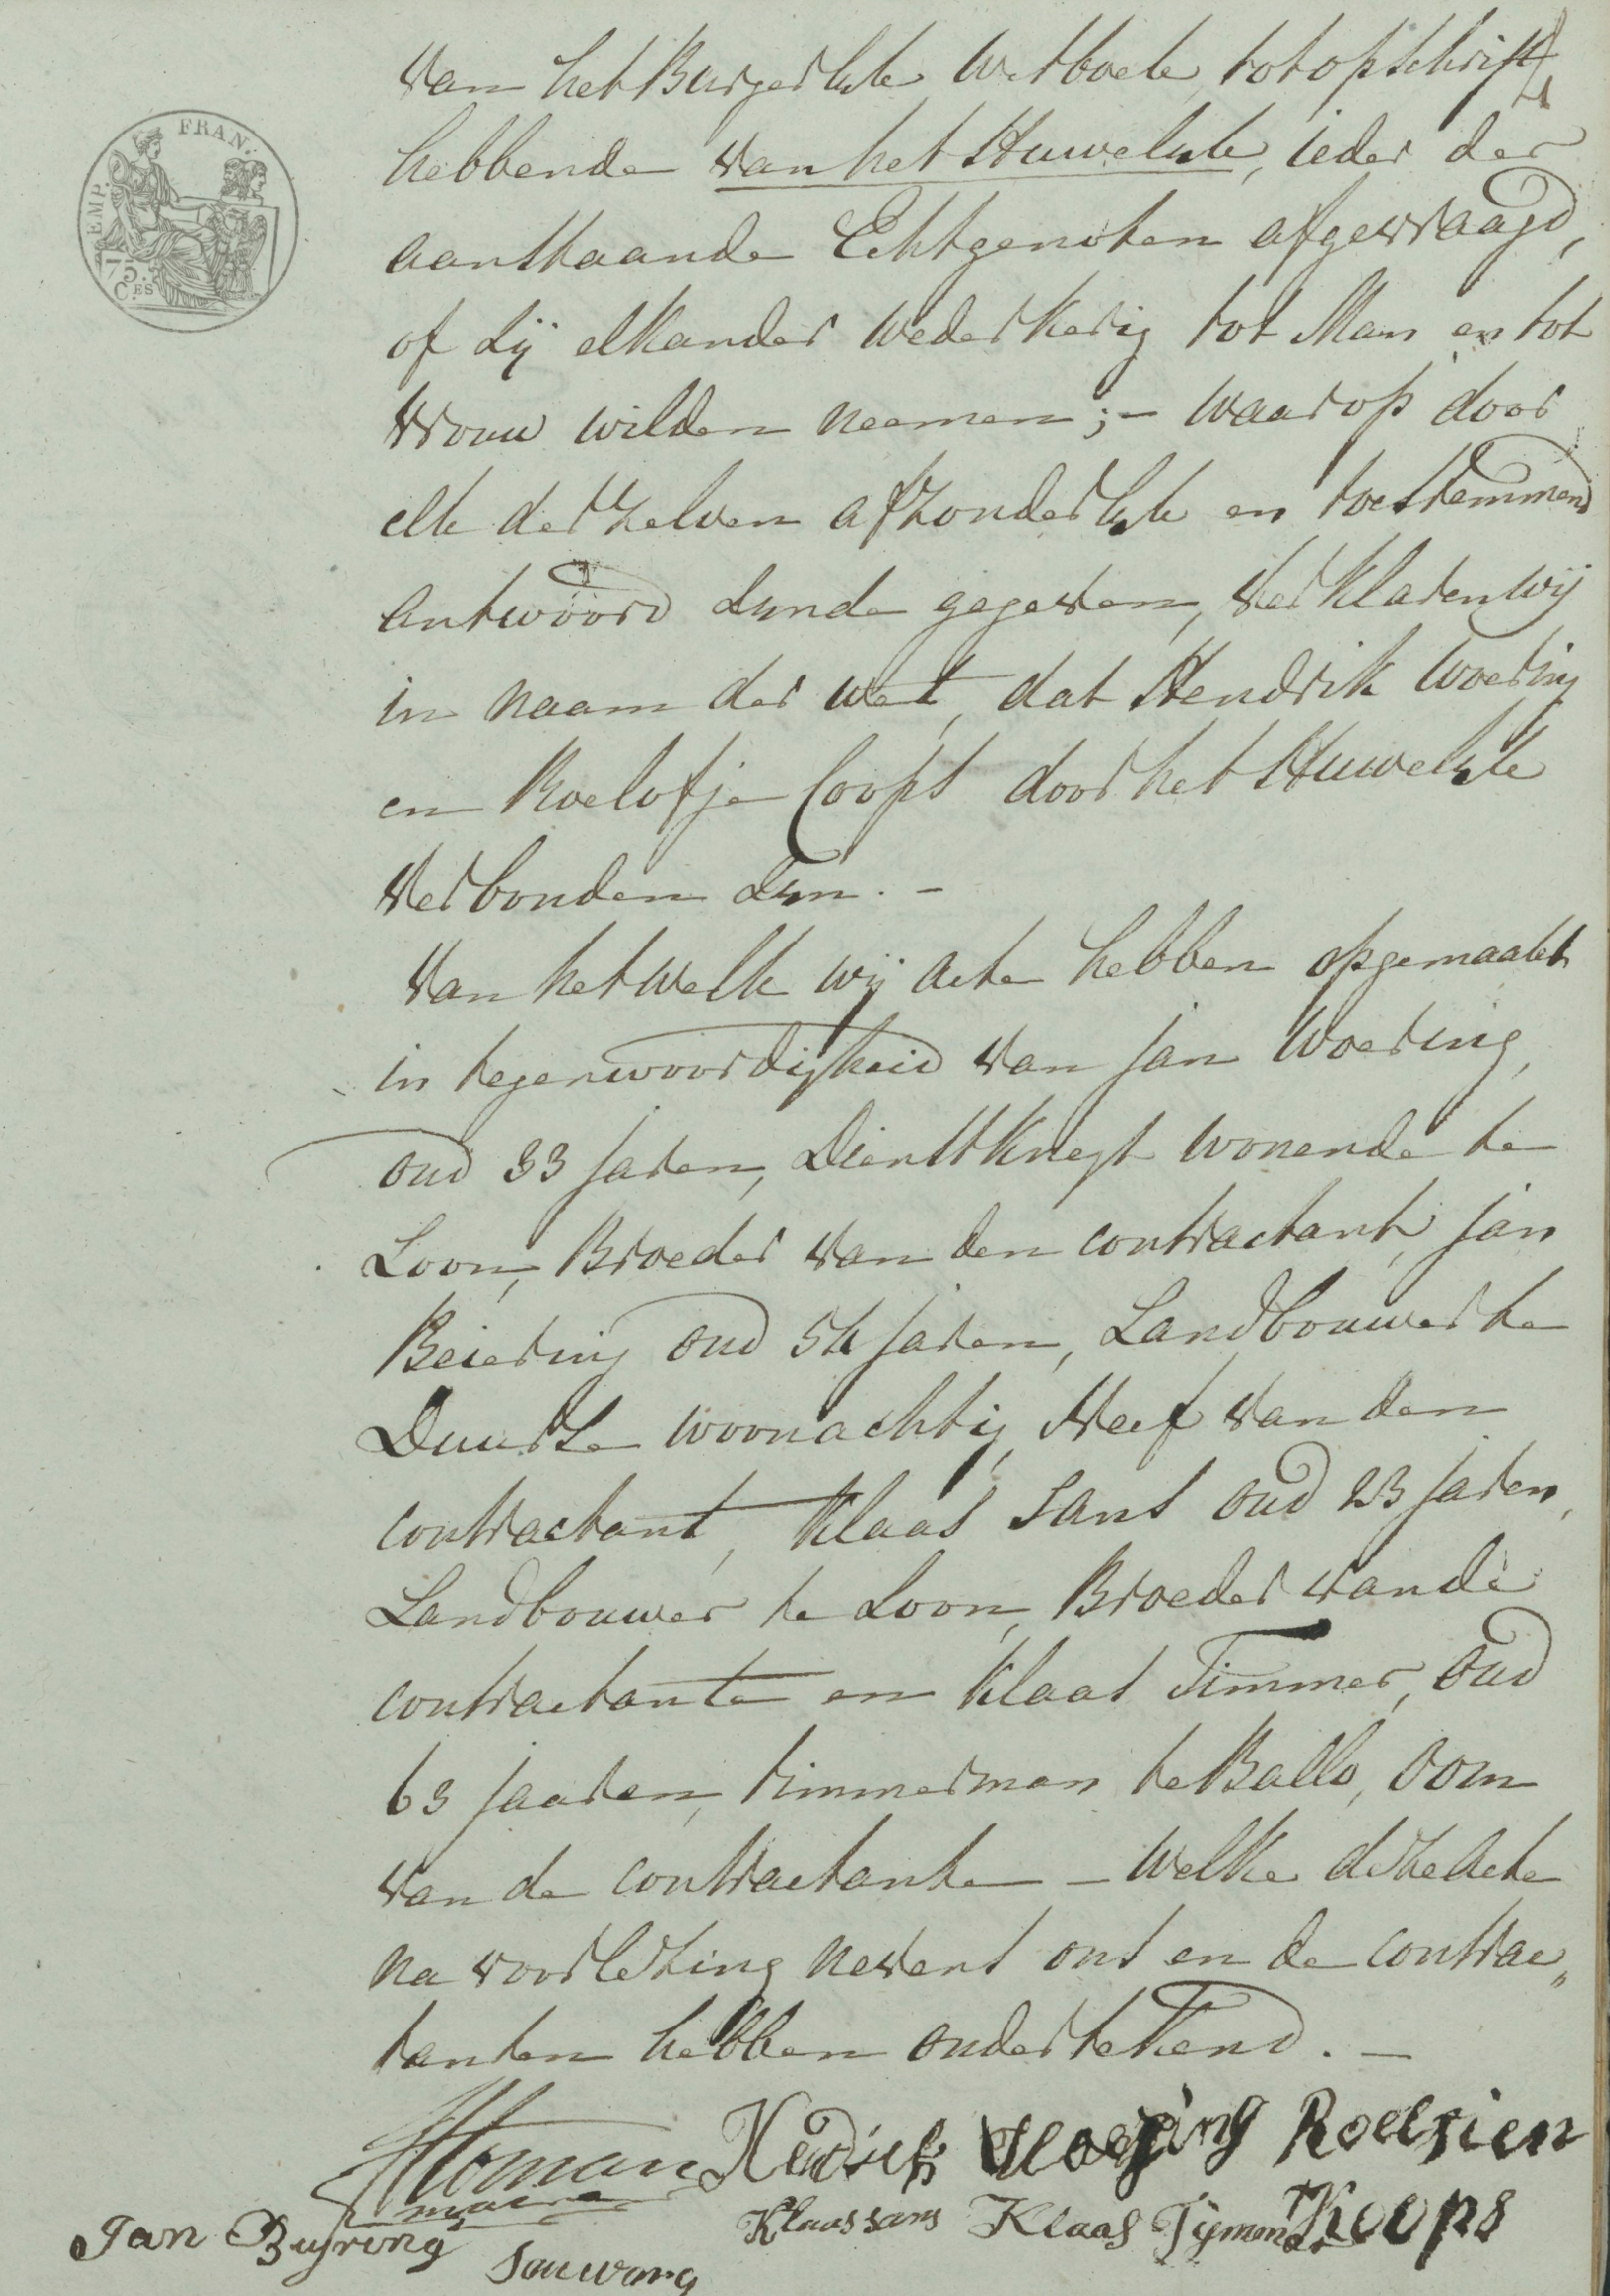 van het Burgerlyk Wetboek, tot opschrift
hebbende van het Huwelyk, ieder der
aanstaande Echtgenoten afgevraagd,
of zy elkander wederkerig tot Man en tot
vrouw wilden neemen; - waarop door
elk derzelven afzonderlyk en toestemmend
antwoord zynde gegeven, verklaren wy
in naam der wet, dat Hendrik Woering
en Roelofje Coops door het Huwelyk
verbonden zyn. -
van het welk wy acte hebben opgemaakt
in tegenwoordigheid van Jan Woering,
oud 33 jaren, Dienstknegt wonende te
Loon, Broeder van den contractant, Jan
Beiering oud 54 jaren, Landbouwer te
Duurse woonachtig, Neef van den
contractant, Klaas Sans oud 23 jaren,
Landbouwer te Loon, Broeder van de
contractante en Klaas Timmer, oud
63 jaaren, timmerman te Ballo, Oom
van de contractante - welke deze acte
na voorlezing nevens ons en de contrac„
tanten hebben ondertekend. -
FRAN.
EMP.
75.
C.ES
Homan Hendrik Woering Roelsien
maire
Jan Buyring Klaas sans Klaas Tymmer Koops
Jan wring